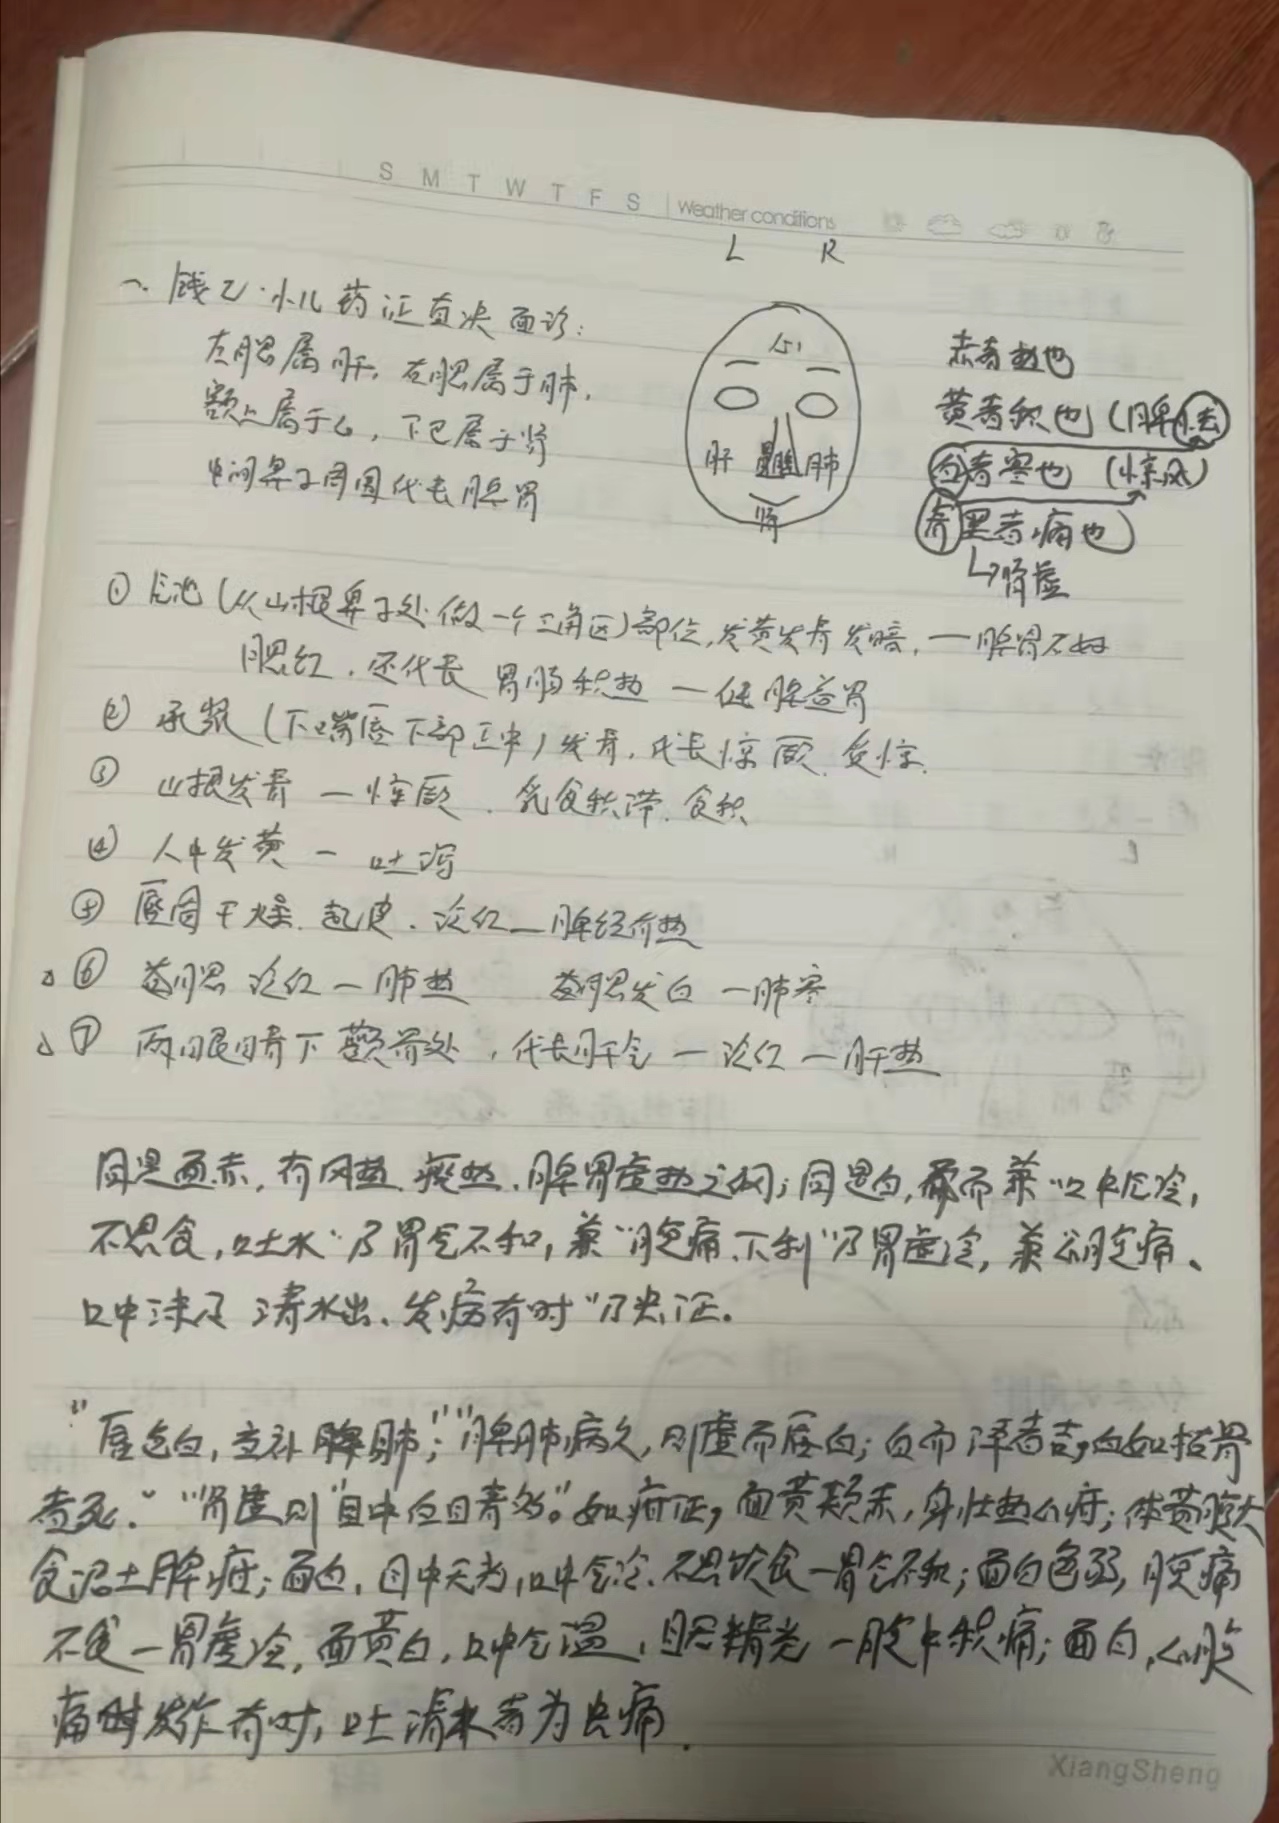 S M T W T F S Weather conditions
L R
一、钱乙·小儿药证直决 面诊:
左腮属肝,右腮属于肺,
额上属于心,下巴属于肾
中间鼻子周围代表脾胃
心
肝 脾胃 肺
肾
赤者热也
黄者积也(脾虚)
白者寒也(惊风)
青黑者痛也)
↳肾虚
① 气池(从山根鼻子处做一个三角区)部位,发黄发青发暗,一脾胃不好
腮红,还代表 胃肠积热 一健脾益胃
② 承浆(下嘴唇下部正中)发青,代表惊厥、受惊.
③ 山根发青 一 惊厥、乳食积滞、食积
④ 人中发黄 一 吐泻
⑤ 唇周干燥、起皮、淡红一脾经有热
⑥ 若腮淡红一肺热 若腮发白一肺寒
⑦ 两眼睛下颧骨处,代表肝气一淡红一肝热
同是面赤,有风热、痰热、脾胃虚热之别;同是白,痛而兼“口中气冷,
不思食,吐水”乃胃气不和,兼“腹痛、下利”乃胃虚冷,兼“心腹痛、
口中沫及清水出、发病有时”乃虫证.
“唇色白,当补脾肺;”“脾肺病久,则虚而唇白;白而泽者吉,白如枯骨
者死.”“肾虚则“目中白睛多”。如疳证,面黄颊赤,身壮热心疳;体黄腹大
食泥土脾疳;面白,目中无光,口中气冷、不思饮食一胃气不和;面白色弱,腹痛
不食一胃虚冷,面黄白,口中气温,目无精光一腹中积痛;面白,心腹
痛时发作有时,吐清水者为虫痛.
XiangSheng